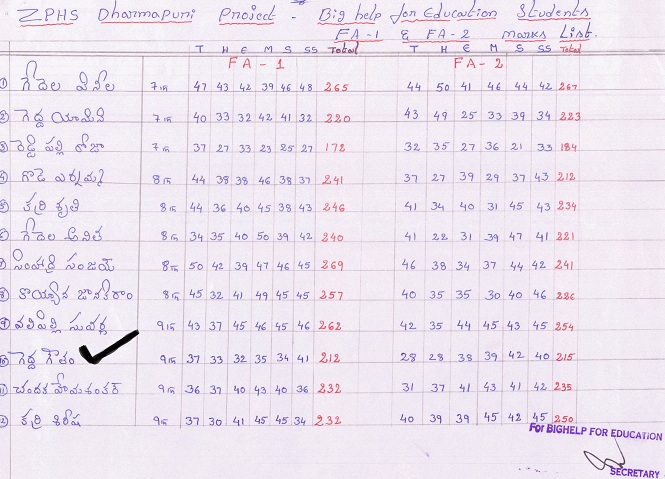 ZPHS Dharmapuri Project - Big help for Education Students
FA-1 & FA-2 marks List.
T H E M S SS Total T H E M S SS Total
FA-1 FA-2
① గేదెల వినీల 7th 47 43 42 39 46 48 265 44 50 41 46 44 42 267
② గెద్ద యామిని 7th 40 33 32 42 41 32 220 43 49 25 33 39 34 223
③ రెడ్డి పల్లి రోజా 7th 37 27 33 23 25 27 172 32 35 27 36 21 33 184
④ గొడె ఎర్నమ్మ 8th 44 38 38 46 38 37 241 37 27 39 29 37 43 212
⑤ కర్రి కృతి 8th 44 36 40 45 38 43 246 41 34 40 31 45 43 234
⑥ గేదెల అనిత 8th 34 35 40 50 39 42 240 41 22 31 39 47 41 221
⑦ సింహాద్రి సంజయ్ 8th 50 42 39 47 46 45 269 46 38 34 37 44 42 241
⑧ కాయ్యాన జానకిరాం 8th 45 32 41 49 45 45 257 40 35 35 30 40 46 226
⑨ వలిపిల్లి సువర్ణ 9th 43 37 45 46 45 46 262 42 35 44 45 43 45 254
⑩ గెద్ద గౌతం 9th 37 33 32 35 34 41 212 28 28 38 39 42 40 215
⑪ చందక హేమశంకర్ 9th 36 37 40 43 40 36 232 31 37 41 43 41 42 235
⑫ కర్రి శిరీష 9th 37 30 41 45 45 34 232 40 39 39 45 42 45 250
For BIGHELP FOR EDUCATION
SECRETARY